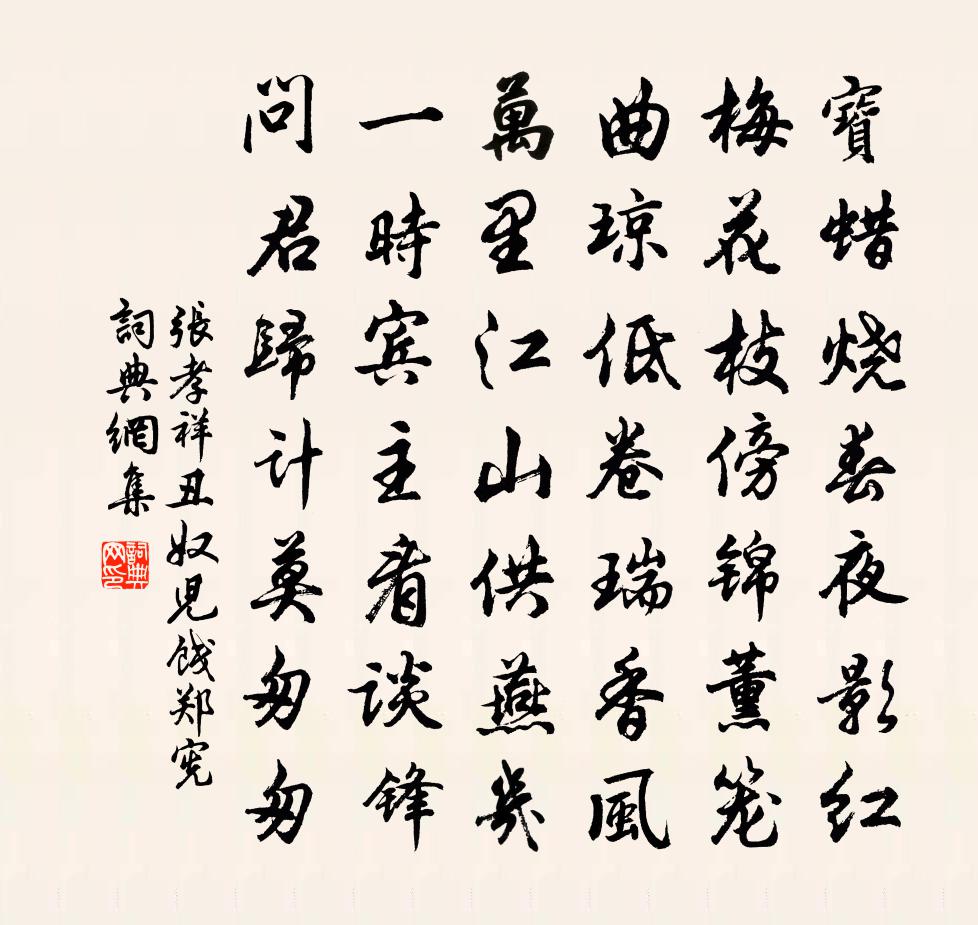 寶蜡烧春夜影红
梅花枝傍锦薰笼
曲琼低卷瑞香風
萬里江山供燕几
一時宾主看談锋
問君歸计莫匆匆
張孝祥丑奴児餞郑宪
詞典網集
詞典网印